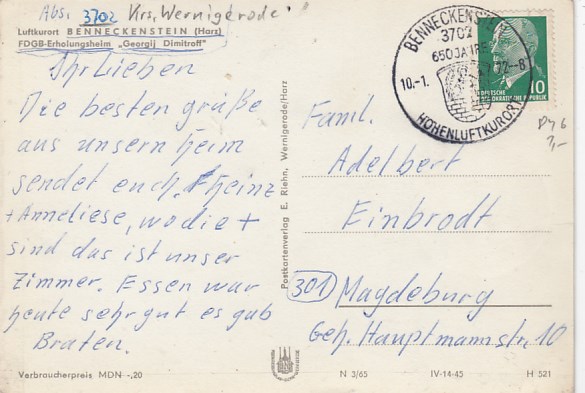 Abs. 3702 Krs. Wernigerode
Luftkurort BENNECKENSTEIN (Harz)
FDGB-Erholungsheim „Georgij Dimitroff"
Ihr Lieben
Die besten grüße
aus unsern Heim
sendet euch Heinz
+ Anneliese, wo die +
sind das ist unser
Zimmer. Essen war
heute sehr gut es gab
Braten.
Verbraucherpreis MDN -,20
Postkartenverlag E. Riehn, Wernigerode/Harz
BENNECKENSTEIN
3702
650 JAHRE
10.-1.
72-8
HÖHENLUFTKURORT
10
DEUTSCHE
DEMOKRATISCHE REPUBLIK
Famil.
Adelbert
Einbrodt
301 Magdeburg
Geh. Hauptmannstr. 10
N 3/65 IV-14-45 H 521